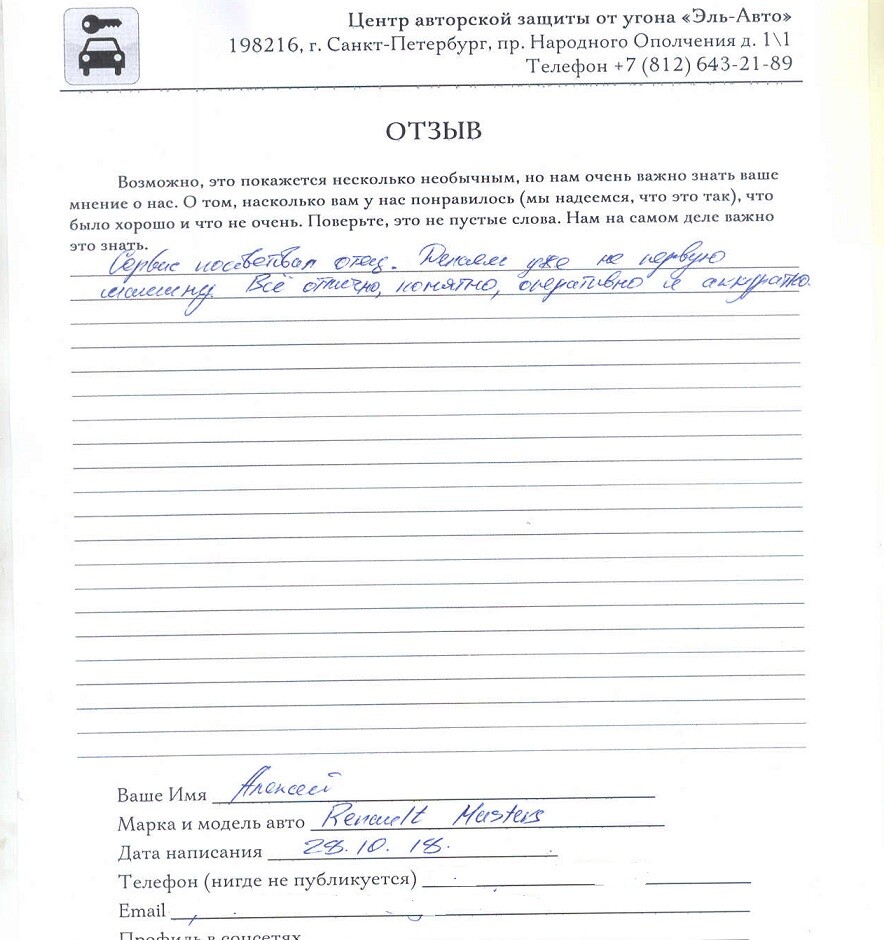 Центр авторской защиты от угона «Эль-Авто»
198216, г. Санкт-Петербург, пр. Народного Ополчения д. 1\1
Телефон +7 (812) 643-21-89
ОТЗЫВ
Возможно, это покажется несколько необычным, но нам очень важно знать ваше
мнение о нас. О том, насколько вам у нас понравилось (мы надеемся, что это так), что
было хорошо и что не очень. Поверьте, это не пустые слова. Нам на самом деле важно
это знать.
Сервис посоветовал отец. Делаем уже не первую
машину. Всё отлично, понятно, оперативно и аккуратно.
Ваше Имя Алексей
Марка и модель авто Renault Masters
Дата написания 28.10.18.
Телефон (нигде не публикуется)
Email
Профиль в соцсетях